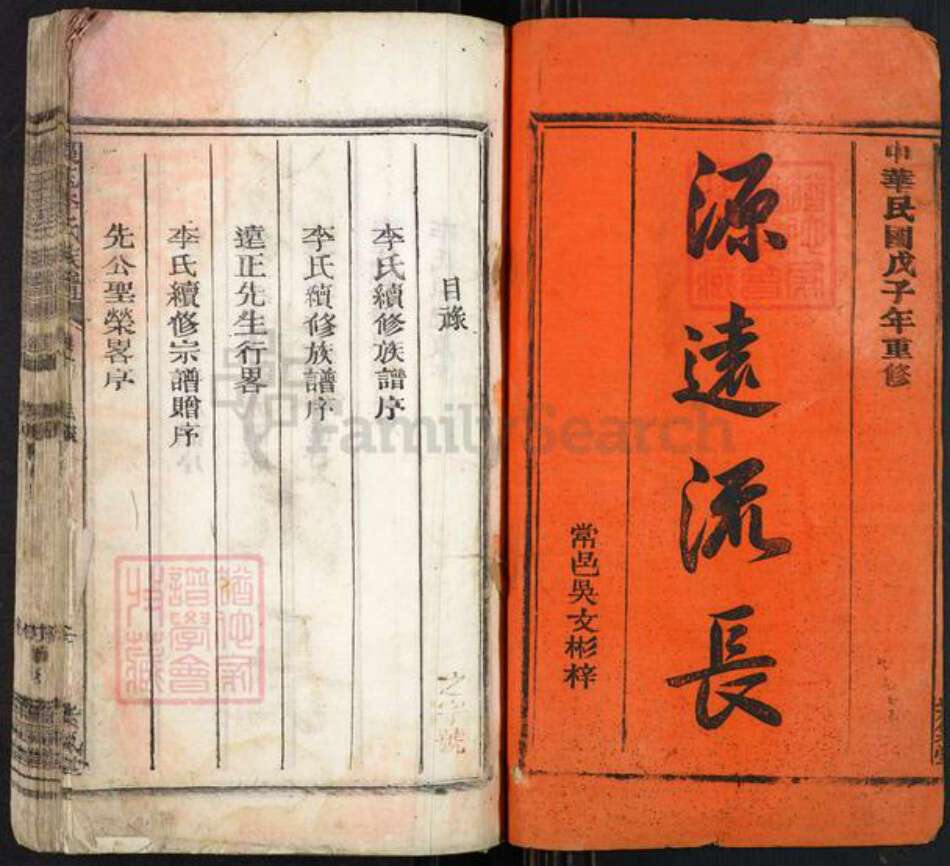 中華民國戊子年重修
源遠流長
常邑吳文彬梓
目錄
李氏續修族譜序
李氏續修族譜序
遠正先生行畧
李氏續修宗譜贈序
先公聖榮畧序
之字號
FamilySearch